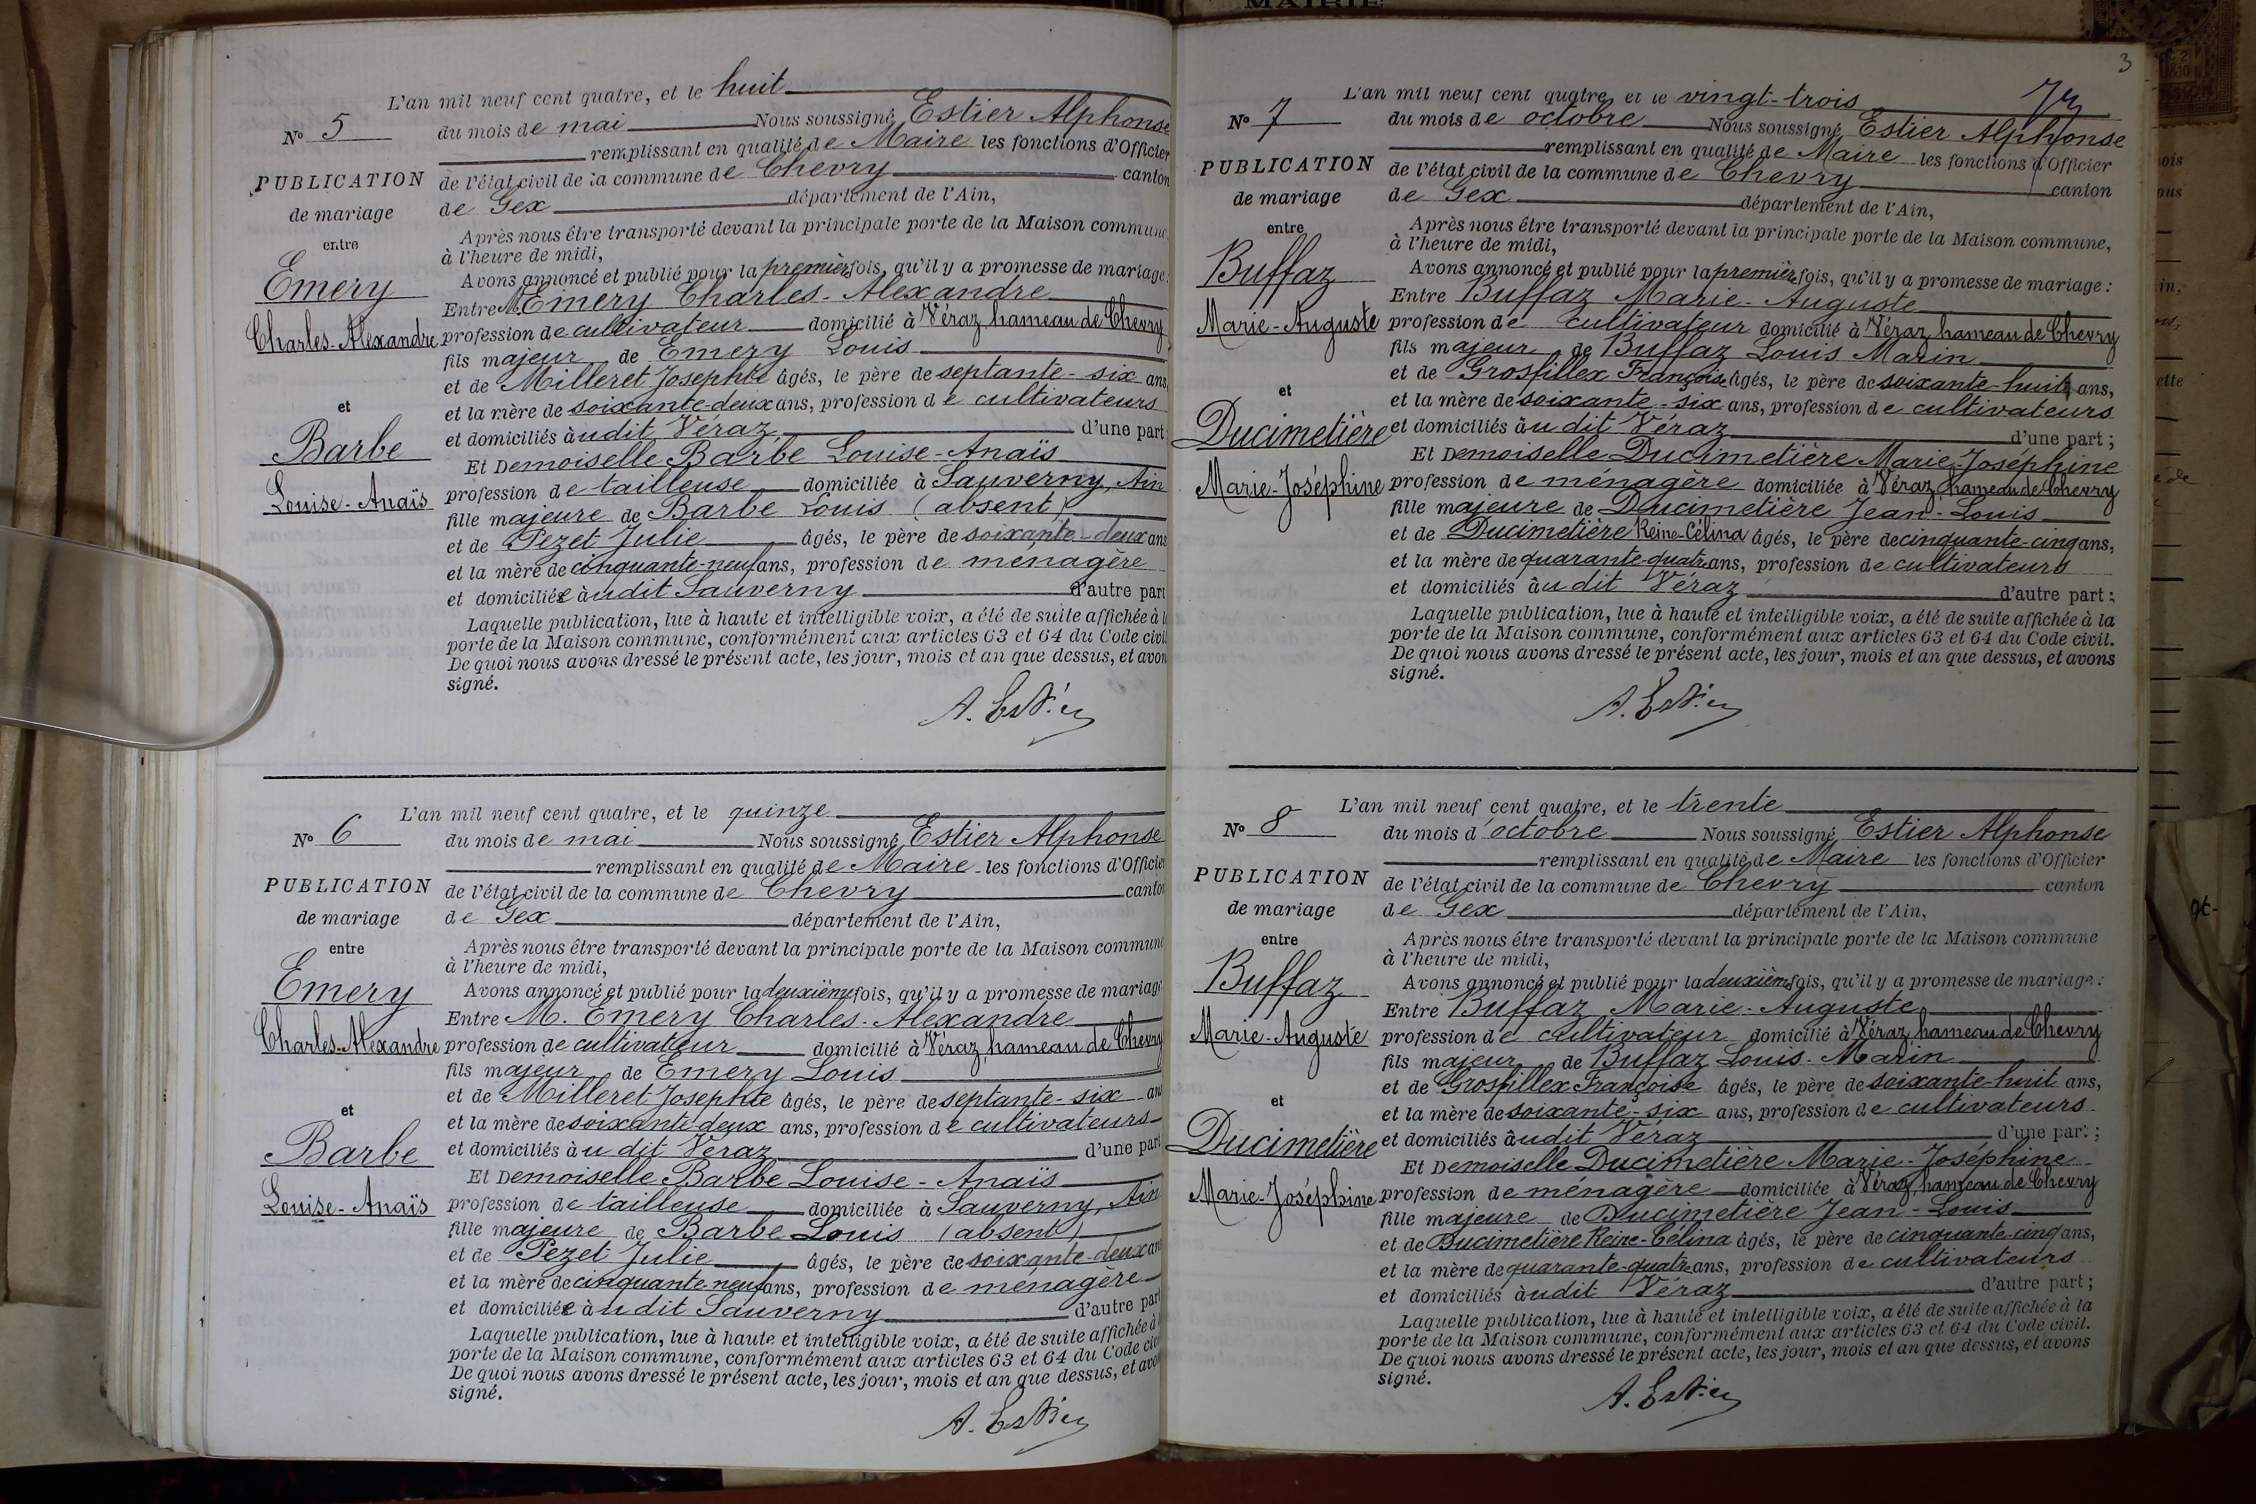 MAIRIE
L'an mil neuf cent quatre, et le huit
Nº 5
du mois de mai Nous soussigné Estier Alphonse
remplissant en qualité de Maire les fonctions d'Officier
PUBLICATION
de l'état civil de la commune de Chevry canton
de mariage
de Gex département de l'Ain,
entre
Après nous être transporté devant la principale porte de la Maison commune
à l'heure de midi,
Avons annoncé et publié pour la première fois, qu'il y a promesse de mariage
Emery
Entre M. Emery Charles-Alexandre
Charles-Alexandre
profession de cultivateur domicilié à Véraz hameau de Chevry
fils majeur de Emery Louis
et de Milleret Josephte âgés, le père de septante-six ans
et
et la mère de soixante-deux ans, profession de cultivateurs
et domiciliés àudit Véraz d'une part
Barbe
Et Demoiselle Barbe Louise-Anaïs
Louise-Anaïs
profession de tailleuse domiciliée à Sauverny, Ain
fille majeure de Barbe Louis (absent)
et de Pezet Julie âgés, le père de soixante-deux ans
et la mère de cinquante-neuf ans, profession de ménagère
et domiciliée àudit Sauverny d'autre part
Laquelle publication, lue à haute et intelligible voix, a été de suite affichée à la
porte de la Maison commune, conformément aux articles 63 et 64 du Code civil
De quoi nous avons dressé le présent acte, les jour, mois et an que dessus, et avon
signé.
A. Estier
L'an mil neuf cent quatre, et le quinze
Nº 6
du mois de mai Nous soussigné Estier Alphonse
remplissant en qualité de Maire les fonctions d'Officier
PUBLICATION
de l'état civil de la commune de Chevry canton
de mariage
de Gex département de l'Ain,
entre
Après nous être transporté devant la principale porte de la Maison commune
à l'heure de midi,
Avons annoncé et publié pour la deuxième fois, qu'il y a promesse de mariage
Emery
Entre M. Emery Charles-Alexandre
Charles-Alexandre
profession de cultivateur domicilié à Véraz hameau de Chevry
fils majeur de Emery Louis
et de Milleret Josephte âgés, le père de septante-six ans
et
et la mère de soixante-deux ans, profession de cultivateurs
et domiciliés àudit Véraz d'une part
Barbe
Et Demoiselle Barbe Louise-Anaïs
Louise-Anaïs
profession de tailleuse domiciliée à Sauverny, Ain
fille majeure de Barbe Louis (absent)
et de Pezet Julie âgés, le père de soixante-deux ans
et la mère de cinquante-neuf ans, profession de ménagère
et domiciliée àudit Sauverny d'autre part
Laquelle publication, lue à haute et intelligible voix, a été de suite affichée à
porte de la Maison commune, conformément aux articles 63 et 64 du Code civ
De quoi nous avons dressé le présent acte, les jour, mois et an que dessus, et avon
signé.
A. Estier
3
L'an mil neuf cent quatre, et le vingt-trois
Nº 7
du mois de octobre Nous soussigné Estier Alphonse
remplissant en qualité de Maire les fonctions d'Officier
PUBLICATION
de l'état civil de la commune de Chevry canton
de mariage
de Gex département de l'Ain,
entre
Après nous être transporté devant la principale porte de la Maison commune,
à l'heure de midi,
Avons annoncé et publié pour la première fois, qu'il y a promesse de mariage :
Buffaz
Entre Buffaz Marie-Auguste
Marie-Auguste
profession de cultivateur domicilié à Véraz hameau de Chevry
fils majeur de Buffaz Louis Marin
et de Grosfillex Françoise âgés, le père de soixante-huit ans,
et
et la mère de soixante-six ans, profession de cultivateurs
Ducimetière
et domiciliés àudit Véraz d'une part ;
Et Demoiselle Ducimetière Marie-Joséphine
Marie-Joséphine
profession de ménagère domiciliée à Véraz, hameau de Chevry
fille majeure de Ducimetière Jean-Louis
et de Ducimetière Reine-Célina âgés, le père de cinquante-cinq ans,
et la mère de quarante-quatre ans, profession de cultivateurs
et domiciliés àudit Véraz d'autre part ;
Laquelle publication, lue à haute et intelligible voix, a été de suite affichée à la
porte de la Maison commune, conformément aux articles 63 et 64 du Code civil.
De quoi nous avons dressé le présent acte, les jour, mois et an que dessus, et avons
signé.
A. Estier
L'an mil neuf cent quatre, et le trente
Nº 8
du mois d'octobre Nous soussigné Estier Alphonse
remplissant en qualité de Maire les fonctions d'Officier
PUBLICATION
de l'état civil de la commune de Chevry canton
de mariage
de Gex département de l'Ain,
entre
Après nous être transporté devant la principale porte de la Maison commune
à l'heure de midi,
Avons annoncé et publié pour la deuxième fois, qu'il y a promesse de mariage :
Buffaz
Entre Buffaz Marie-Auguste
Marie-Auguste
profession de cultivateur domicilié à Véraz, hameau de Chevry
fils majeur de Buffaz Louis-Marin
et de Grosfillex Françoise âgés, le père de soixante-huit ans,
et
et la mère de soixante-six ans, profession de cultivateurs
Ducimetière
et domiciliés àudit Véraz d'une part ;
Et Demoiselle Ducimetière Marie-Joséphine
Marie-Joséphine
profession de ménagère domiciliée à Véraz, hameau de Chevry
fille majeure de Ducimetière Jean-Louis
et de Ducimetière Reine-Célina âgés, le père de cinquante-cinq ans,
et la mère de quarante-quatre ans, profession de cultivateurs
et domiciliés àudit Véraz d'autre part ;
Laquelle publication, lue à haute et intelligible voix, a été de suite affichée à la
porte de la Maison commune, conformément aux articles 63 et 64 du Code civil.
De quoi nous avons dressé le présent acte, les jour, mois et an que dessus, et avons
signé.
A. Estier